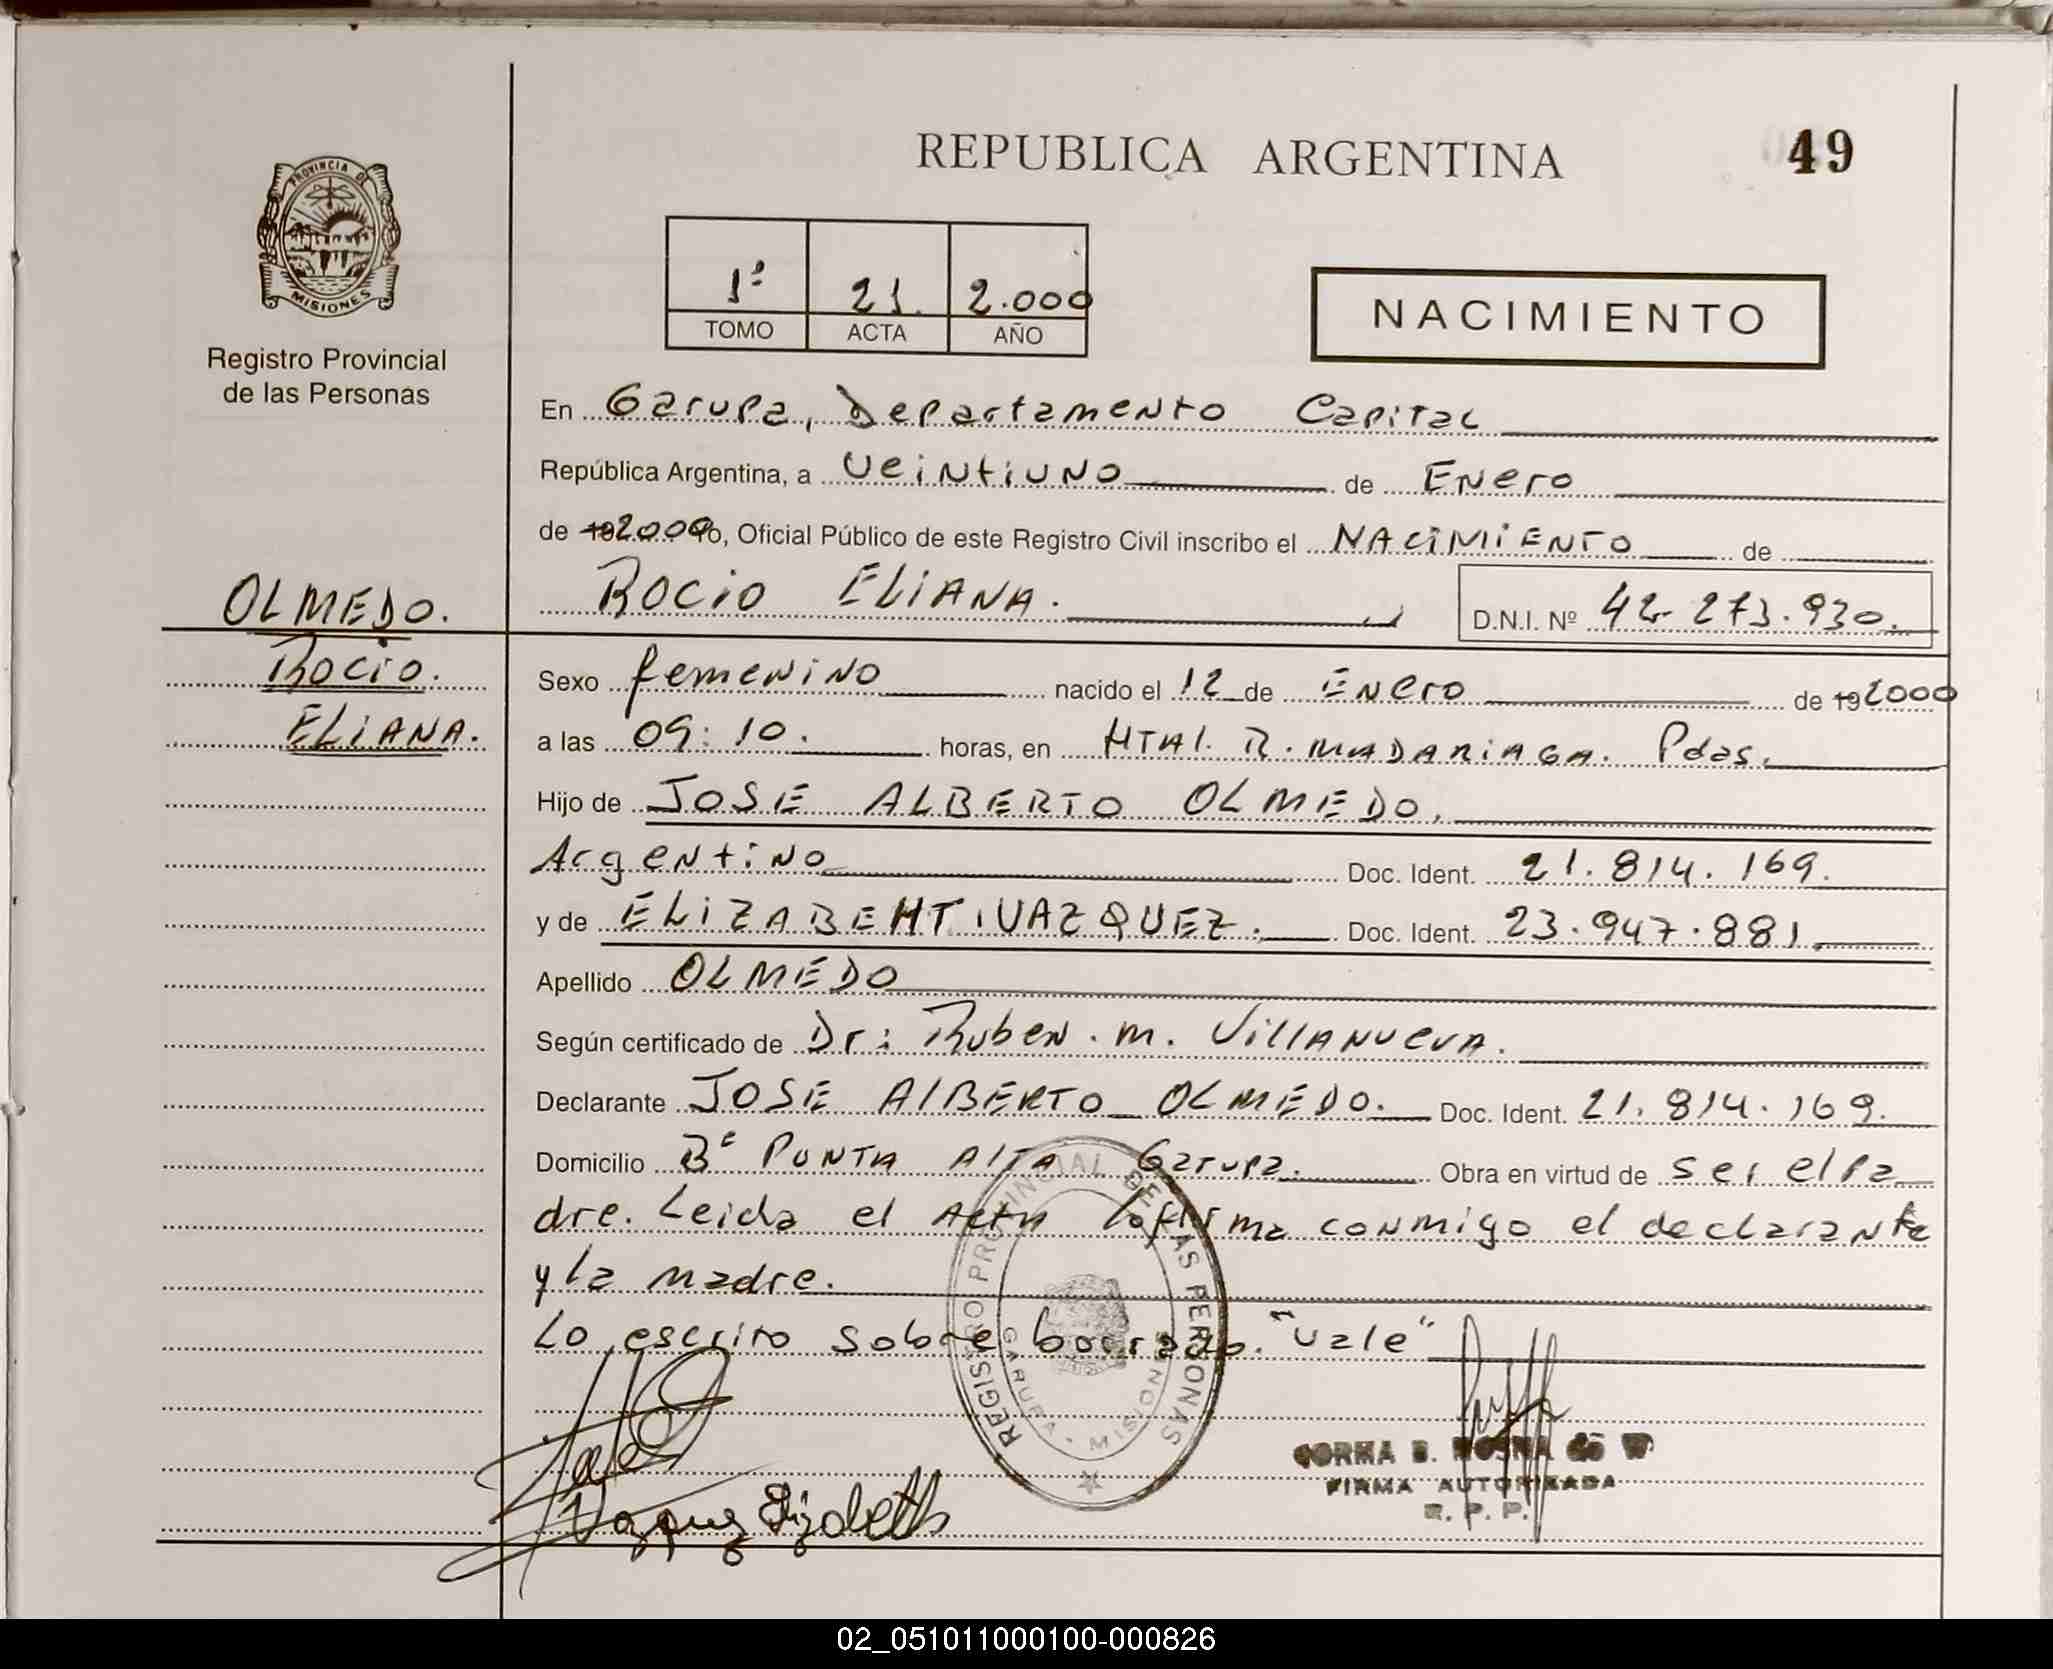 REPUBLICA ARGENTINA
49
PROVINCIA DE
MISIONES
Registro Provincial
de las Personas
1º 21. 2.000
TOMO ACTA AÑO
NACIMIENTO
En Garupa, Departamento Capital
República Argentina, a Veintiuno de Enero
de 19 2000 yo, Oficial Público de este Registro Civil inscribo el NACIMIENTO de
ROCIO ELIANA.
D.N.I. Nº 42.273.930.
OLMEDO.
Rocio.
ELIANA.
Sexo femenino nacido el 12 de Enero de 19 2000
a las 09:10. horas, en HTAl. R. MADARIAGA. Pdas.
Hijo de JOSE ALBERTO OLMEDO.
Argentino Doc. Ident. 21.814.169.
y de ELIZABEHT VAZQUEZ. Doc. Ident. 23.947.881.
Apellido OLMEDO
Según certificado de Dr: Ruben. M. Villanueva.
Declarante JOSE AlBERTO OLMEDO. Doc. Ident. 21.814.169.
Domicilio Bº PUNTA AlTA Garupa. Obra en virtud de ser el pa
dre. Leida el Acta la firma conmigo el declarante
y la madre.
Lo escrito sobre borrado. "Vale"
REGISTRO PROVINCIAL DE LAS PERSONAS
GARUPA - MISIONES
Vazquez Elizabeth
FIRMA AUTORIZADA
R. P. P.
02_051011000100-000826